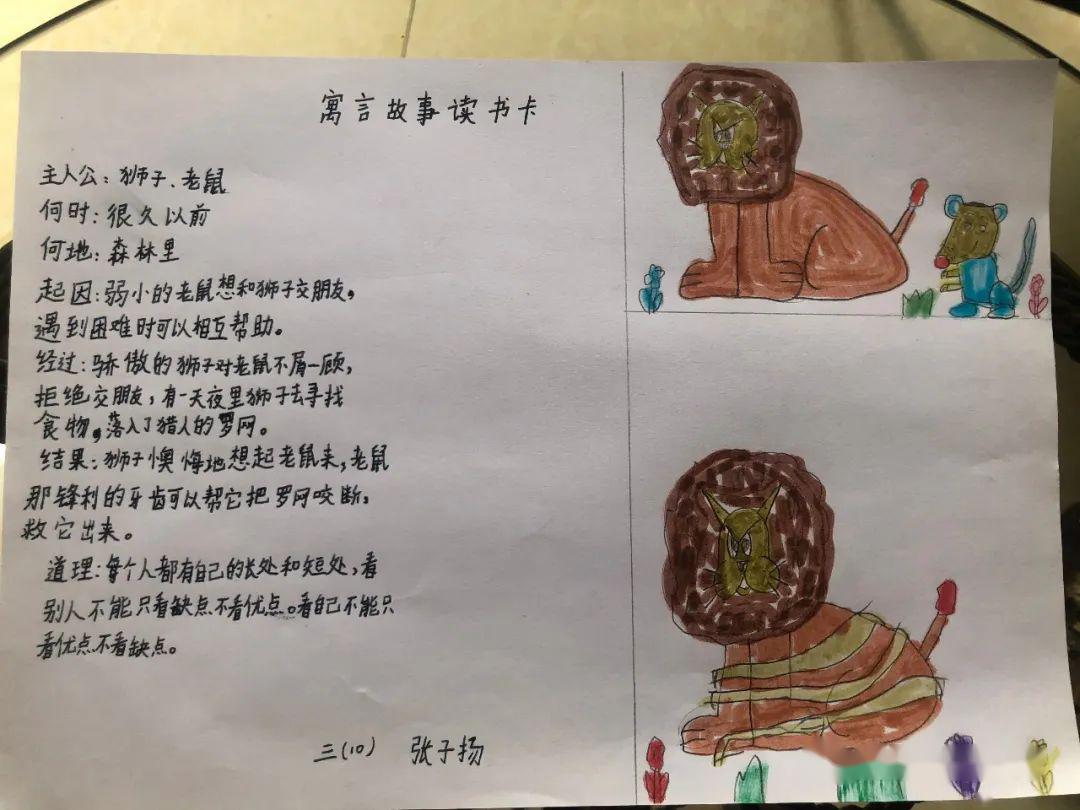 寓言故事读书卡
主人公：狮子、老鼠
何时：很久以前
何地：森林里
起因：弱小的老鼠想和狮子交朋友，
遇到困难时可以相互帮助。
经过：骄傲的狮子对老鼠不屑一顾，
拒绝交朋友，有一天夜里狮子去寻找
食物，落入了猎人的罗网。
结果：狮子懊悔地想起老鼠来，老鼠
那锋利的牙齿可以帮它把罗网咬断，
救它出来。
道理：每个人都有自己的长处和短处，看
别人不能只看缺点不看优点。看自己不能只
看优点不看缺点。
三(10) 张子扬